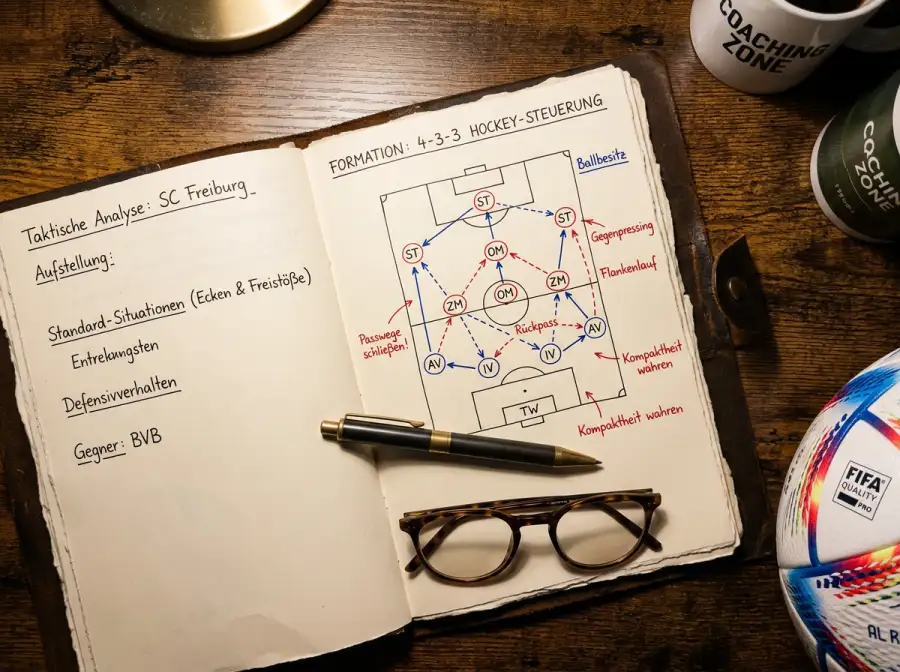 Taktische Analyse: SC Freiburg
Aufstellung:
Standard-Situationen (Ecken & Freistöße)
Entrelungsten
Defensivverhalten
Gegner: BVB
FORMATION: 4-3-3 HOCKEY-STEUERUNG
Ballbesitz
ST
ST
Gegenpressing
ST
OM
Flankenlauf
ZM
ZM
OM
Passwege
schließen!
Rückpass
AV
AV
IV
IV
Kompaktheit
wahren
TW
Kompaktheit wahren
COACHING
ZONE
ZONE
FIFA
QUALITY
PRO
AL R